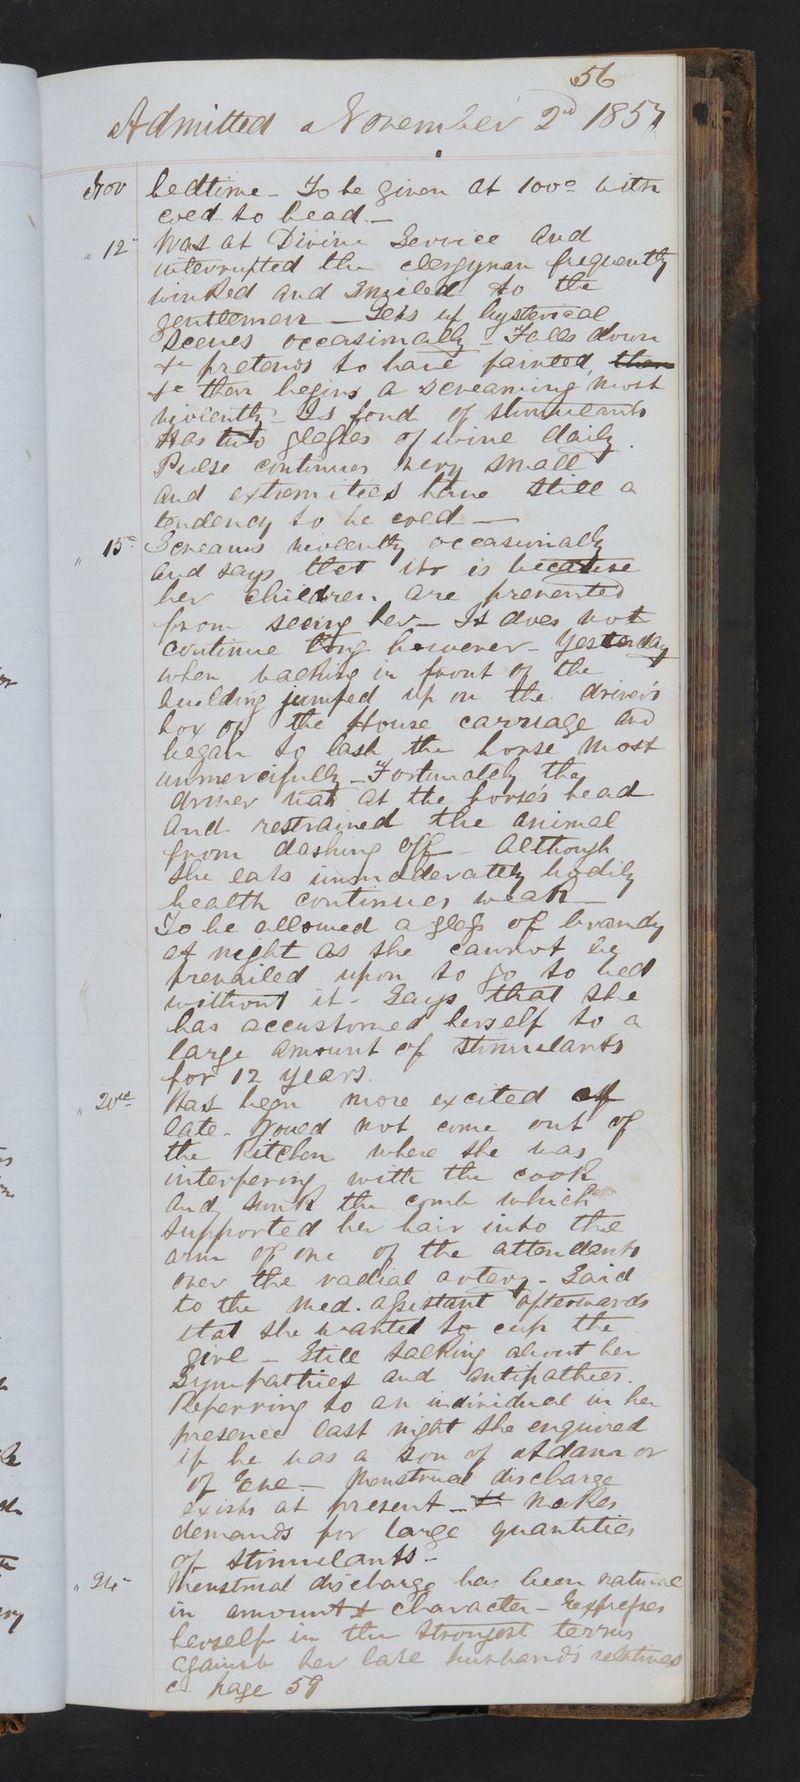 56
Admitted November 2d 1857
Nov bedtime - To be given at 100° with
cold to head. -
" 12 Was at Divine Service and
interrupted the clergyman frequently
winked and smiled to the
gentlemen - Gets up hysterical
scenes occasionally - Falls down
& pretends to have fainted, then
& then begins a screaming most
violently - Is fond of stimulants
Has two glasses of wine daily.
Pulse continues very small
and extremities have still a
tendency to be cold -
" 15 Screams violently occasionally
and says that it is because
her children are prevented
from seeing her - It does not
continue long however - Yesterday
when walking in front of the
building jumped up on the driver's
box of the House carriage and
began to lash the horse most
unmercifully - Fortunately the
driver was at the horse's head
and restrained the animal
from dashing off - Although
she eats immoderately bodily
health continues weak -
To be allowed a glass of brandy
at night as she cannot be
prevailed upon to go to bed
without it - Says that she
has accustomed herself to a
large amount of stimulants
for 12 years.
" 20th Has been more excited of
late. Would not come out of
the kitchen where she was
interfering with the cook
and sunk the comb which
supported her hair into the
arm of one of the attendants
over the radial artery - Said
to the Med. Assistant afterwards
that she wanted to cup the
girl - Still talking about her
Sympathies and antipathies.
Referring to an individual in her
presence last night she enquired
if he was a son of Adam or
of Eve - Menstrual discharge
exists at present - Makes
demands for large quantities
of stimulants -
" 24 Menstrual discharge has been natural
in amount & character - Expresses
herself in the strongest terms
against her late husband's relatives
page 59